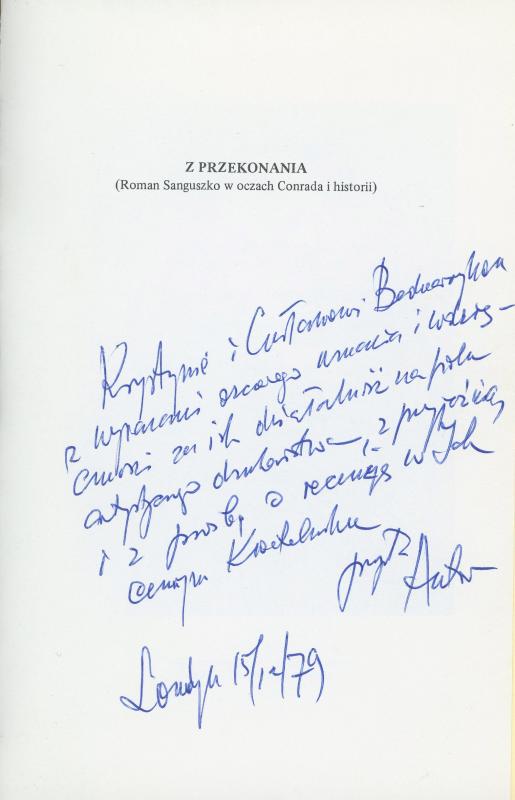 Z PRZEKONANIA
(Roman Sanguszko w oczach Conrada i historii)
Krystynie i Czesławowi Bednarczykom
z wyrazami uznania i wdzię-
czności za ich działalność na polu
artystycznego drukarstwa, z przyjaźnią,
i z prośbą o recenzję w Ich
cennym Kwartalniku
Autor
Londyn 15/12/79